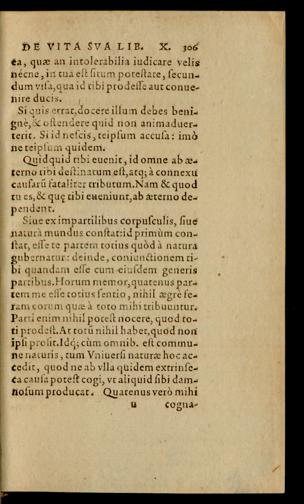 DE VITA SVA LIB. X. 306
ea, quæ an intolerabilia iudicare velis
nécne, in tua est situm potestate, secun-
dum visa, qua id tibi prodesse aut conue-
nire ducis.
Si quis errat, docere illum debes beni-
gnè, & ostendere quid non animaduer-
terit. Si id nescis, teipsum accusa: imò
ne teipsum quidem.
Quidquid tibi euenit, id omne ab æ-
terno tibi destinatum est, atq; à connexu
causarũ fataliter tributum. Nam & quod
tu es, & quę tibi eueniunt, ab æterno de-
pendent.
Siue ex impartilibus corpusculis, siue
naturâ mundus constat: id primùm con-
stat, esse te partem totius quòd à natura
gubernatur: deinde, coniunctionem ti-
bi quandam esse cum eiusdem generis
partibus. Horum memor, quatenus par-
tem me esse totius sentio, nihil ægrè fe-
ram eorum quæ à toto mihi tribuuntur.
Parti enim nihil potest nocere, quod to-
ti prodest. At totũ nihil habet, quod non
ipsi prosit. Idq; cùm omnib. est commu-
ne naturis, tum Vniuersi naturæ hoc ac-
cedit, quod ne ab vlla quidem extrinse-
ca causa potest cogi, vt aliquid sibi dam-
nosum producat. Quatenus verò mihi
u cogna-